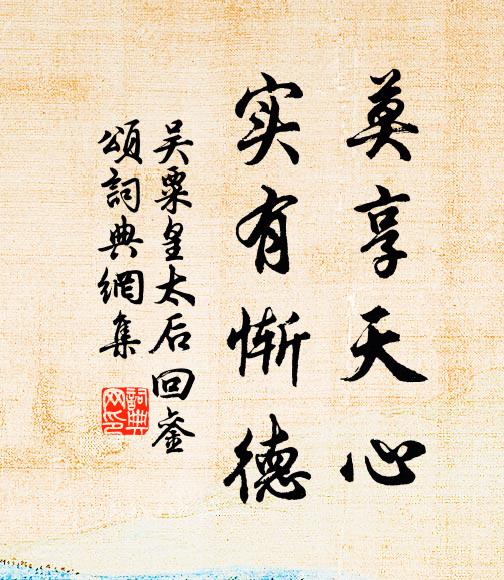 莫享天心
实有惭德
吴栗皇太后回銮
颂词典网集
詞典
网印